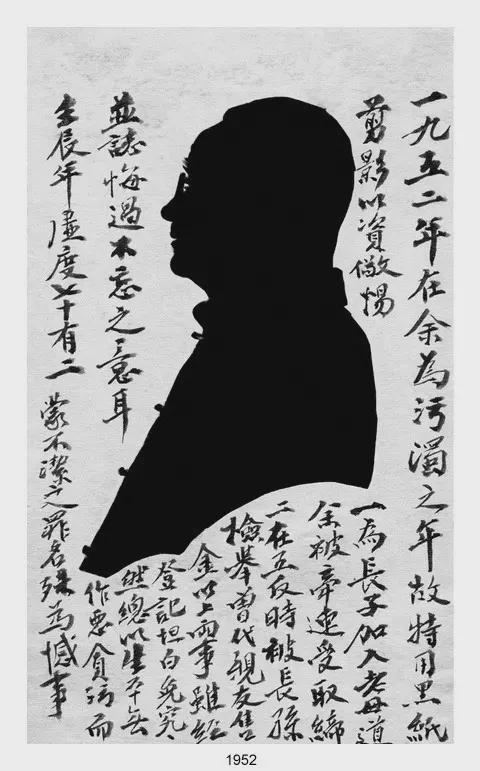 一九五二年在余為污濁之年故特用黑紙
剪影以資儆惕
一為長子加入老母道
余被牽連受取締
二在五反時被長孫
檢舉曾代親友售
金以上兩事雖經
登記坦白免究
然總以生平無
作惡貪污而
蒙不潔之罪名殊為憾事
並誌悔過不忘之意耳
壬辰年虛度七十有二
1952